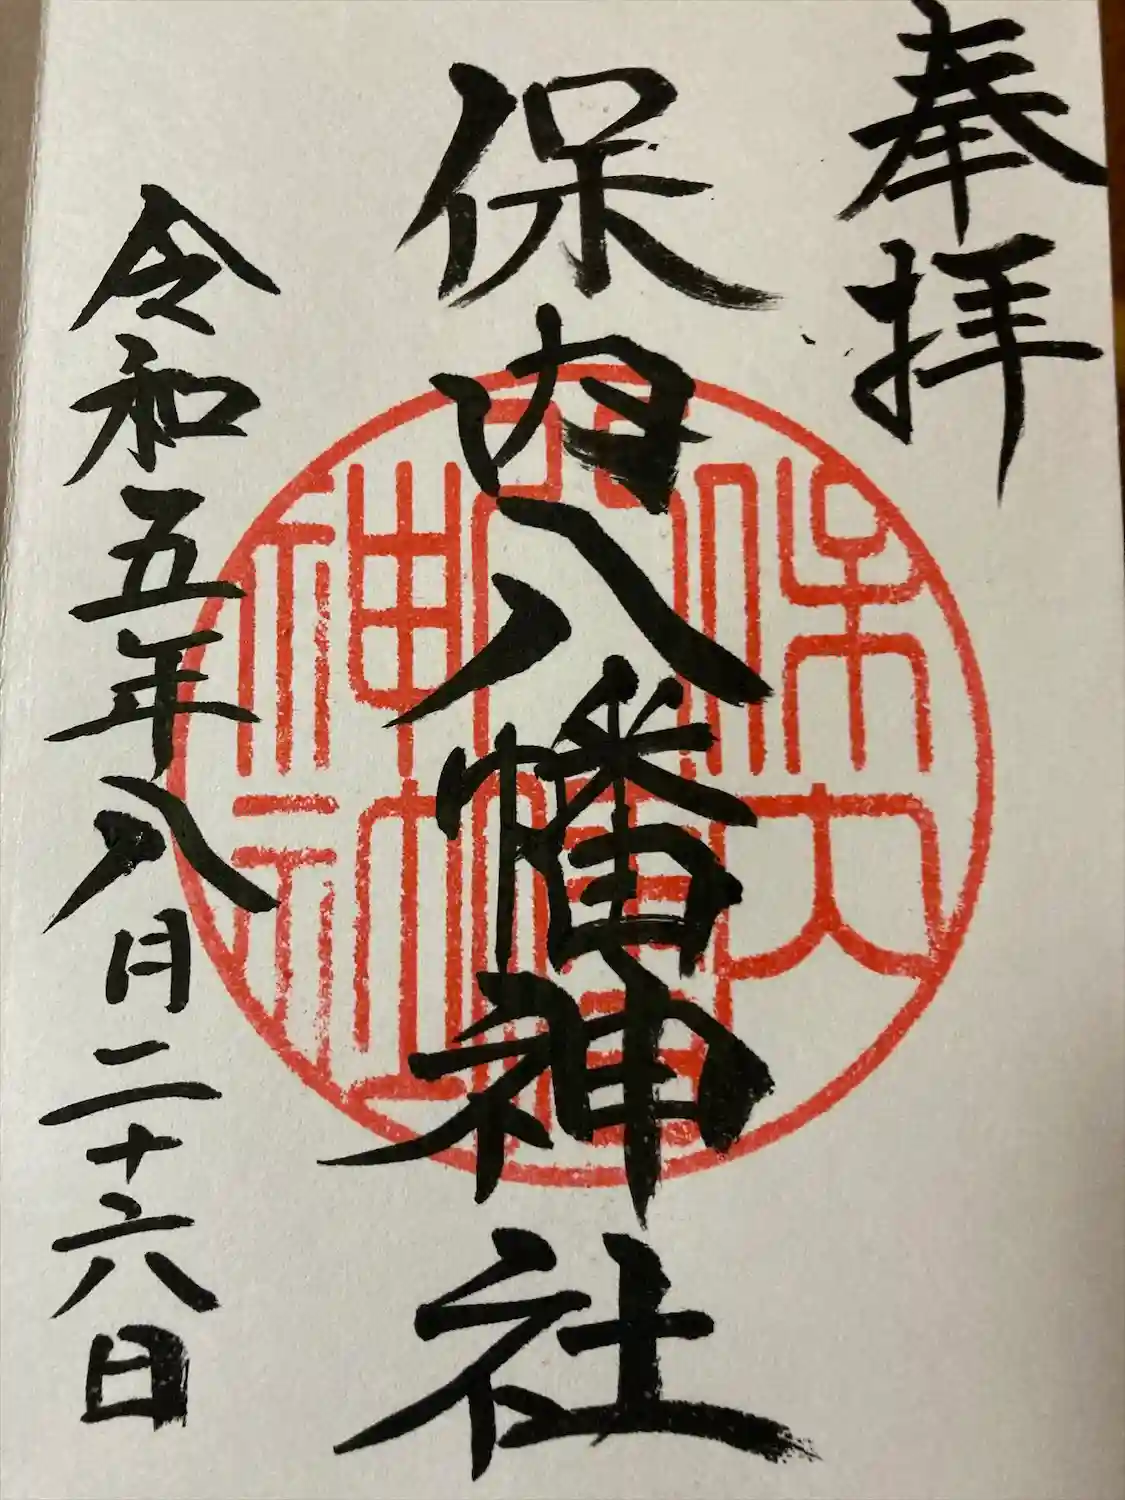 奉拝
保内八幡神社
保内
八幡
神社
令和五年八月二十六日